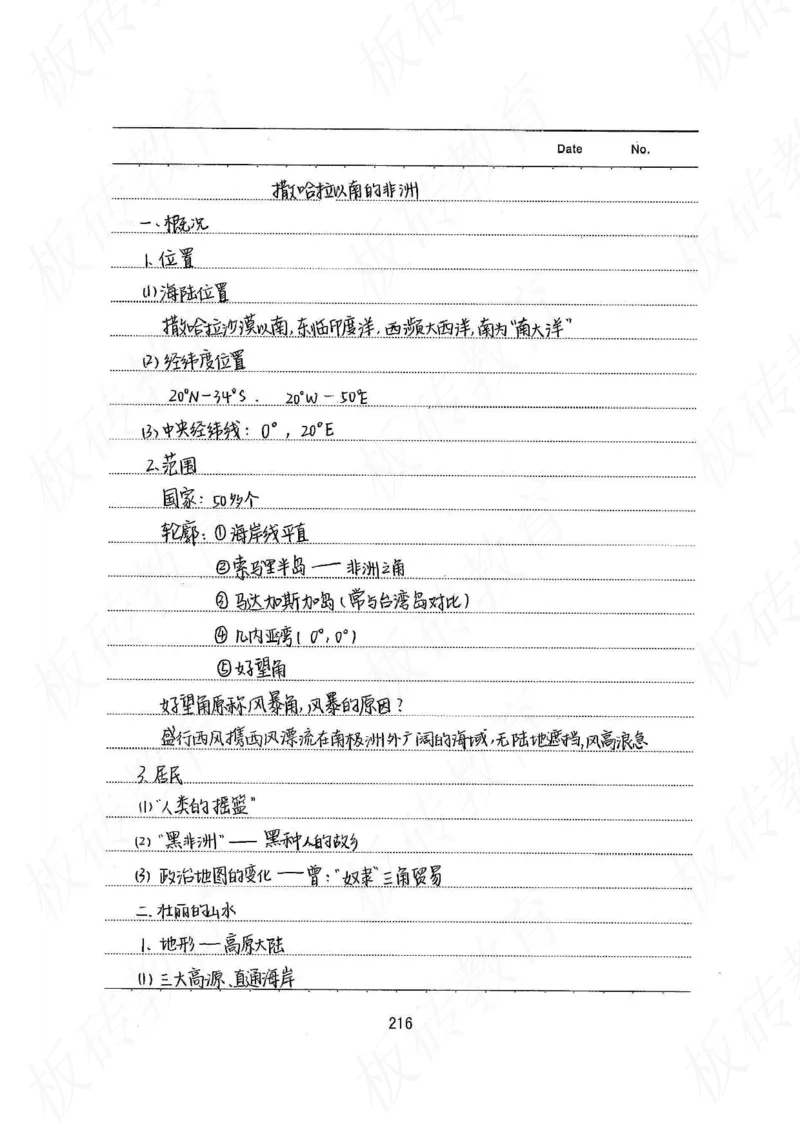 Date No.
撒哈拉以南的非洲
一、概况
1. 位置
(1) 海陆位置
撒哈拉沙漠以南,东临印度洋,西濒大西洋,南为"南大洋"
(2) 经纬度位置
20°N-34°S . 20°W-50°E
(3) 中央经纬线: 0°, 20°E
2. 范围
国家: 50多个
轮廓: ①海岸线平直
②索马里半岛——非洲之角
③马达加斯加岛(常与台湾岛对比)
④几内亚湾(0°,0°)
⑤好望角
好望角原称风暴角,风暴的原因?
盛行西风携西风漂流在南极洲外广阔的海域,无陆地遮挡,风高浪急
3. 居民
(1) "人类的摇篮"
(2) "黑非洲"——黑种人的故乡
(3) 政治地图的变化——曾:"奴隶"三角贸易
二. 壮丽的山水
1、地形—高原大陆
(1) 三大高源、直通海岸
216
板砖教育